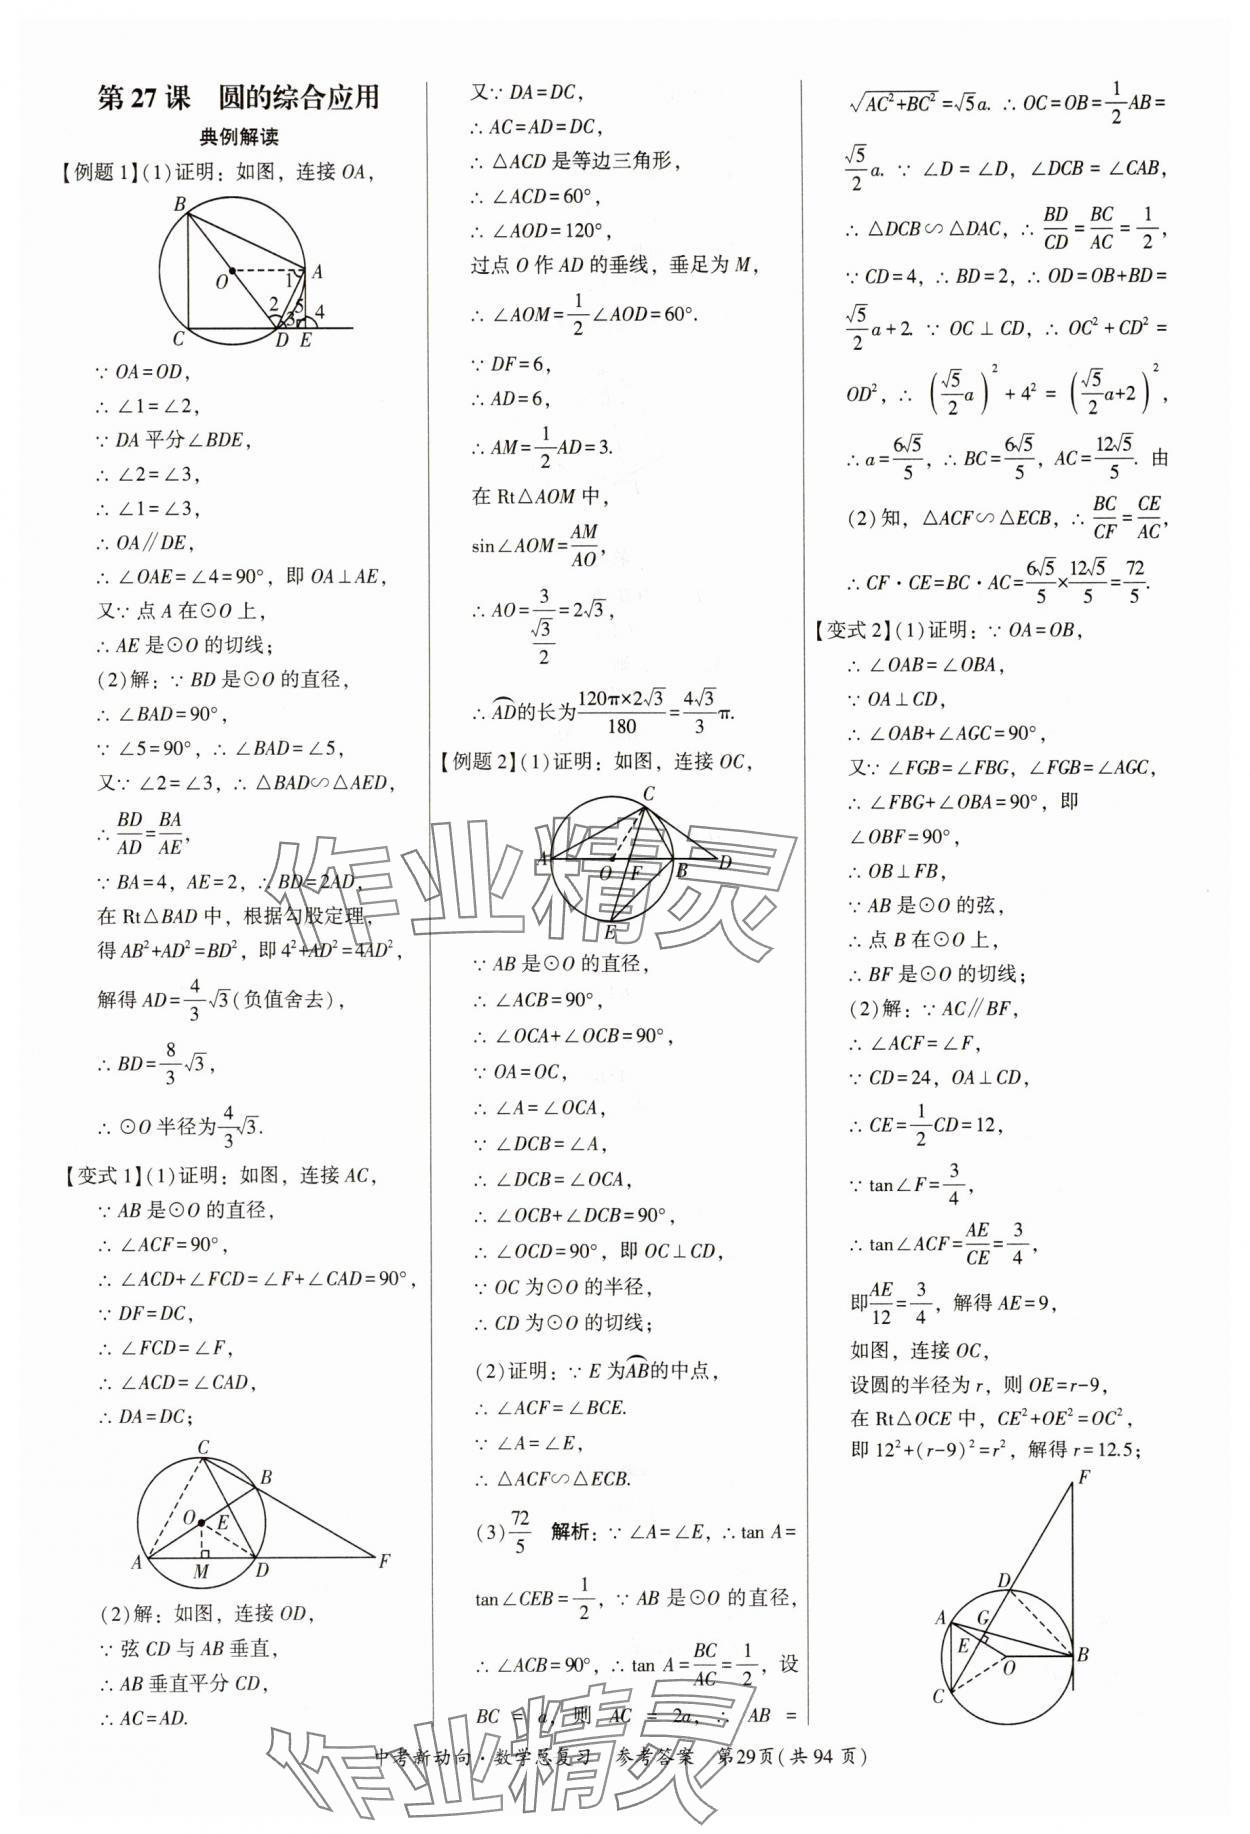 第 27 课　圆的综合应用
典例解读
【例题 1】(1)证明：如图，连接 OA，
B
O
A
1
2
3
5
4
C
D
E
∵ OA=OD，
∴ ∠1=∠2，
∵ DA 平分∠BDE，
∴ ∠2=∠3，
∴ ∠1=∠3，
∴ OA∥DE，
∴ ∠OAE=∠4=90°，即 OA⊥AE，
又∵ 点 A 在⊙O 上，
∴ AE 是⊙O 的切线；
(2)解：∵ BD 是⊙O 的直径，
∴ ∠BAD=90°，
∵ ∠5=90°，∴ ∠BAD=∠5，
又∵ ∠2=∠3，∴ △BAD∽△AED，
∴ BD/AD=BA/AE，
∵ BA=4，AE=2，∴ BD=2AD，
在 Rt△BAD 中，根据勾股定理，
得 AB²+AD²=BD²，即 4²+AD²=4AD²，
解得 AD=4/3√3(负值舍去)，
∴ BD=8/3√3，
∴ ⊙O 半径为4/3√3.
【变式 1】(1)证明：如图，连接 AC，
∵ AB 是⊙O 的直径，
∴ ∠ACF=90°，
∴ ∠ACD+∠FCD=∠F+∠CAD=90°，
∵ DF=DC，
∴ ∠FCD=∠F，
∴ ∠ACD=∠CAD，
∴ DA=DC；
C
B
O
E
A
M
D
F
(2)解：如图，连接 OD，
∵ 弦 CD 与 AB 垂直，
∴ AB 垂直平分 CD，
∴ AC=AD.
又∵ DA=DC，
∴ AC=AD=DC，
∴ △ACD 是等边三角形，
∴ ∠ACD=60°，
∴ ∠AOD=120°，
过点 O 作 AD 的垂线，垂足为 M，
∴ ∠AOM=1/2∠AOD=60°.
∵ DF=6，
∴ AD=6，
∴ AM=1/2AD=3.
在 Rt△AOM 中，
sin∠AOM=AM/AO，
∴ AO=3/(√3/2)=2√3，
∴ A͡D的长为120π×2√3/180=4√3/3π.
【例题 2】(1)证明：如图，连接 OC，
C
A
O
F
B
D
E
∵ AB 是⊙O 的直径，
∴ ∠ACB=90°，
∴ ∠OCA+∠OCB=90°，
∵ OA=OC，
∴ ∠A=∠OCA，
∵ ∠DCB=∠A，
∴ ∠DCB=∠OCA，
∴ ∠OCB+∠DCB=90°，
∴ ∠OCD=90°，即 OC⊥CD，
∵ OC 为⊙O 的半径，
∴ CD 为⊙O 的切线；
(2)证明：∵ E 为A͡B的中点，
∴ ∠ACF=∠BCE.
∵ ∠A=∠E，
∴ △ACF∽△ECB.
(3)72/5　解析：∵ ∠A=∠E，∴ tan A=
tan∠CEB=1/2，∵ AB 是⊙O 的直径，
∴ ∠ACB=90°，∴ tan A=BC/AC=1/2，设
BC = a，则 AC = 2a，∴ AB =
√(AC²+BC²)=√5a. ∴ OC=OB=1/2AB=
√5/2a. ∵ ∠D=∠D，∠DCB=∠CAB，
∴ △DCB∽△DAC，∴ BD/CD=BC/AC=1/2，
∵ CD=4，∴ BD=2，∴ OD=OB+BD=
√5/2a+2. ∵ OC⊥CD，∴ OC²+CD²=
OD²，∴ (√5/2a)²+4²=(√5/2a+2)²，
∴ a=6√5/5，∴ BC=6√5/5，AC=12√5/5. 由
(2)知，△ACF∽△ECB，∴ BC/CF=CE/AC，
∴ CF·CE=BC·AC=6√5/5×12√5/5=72/5.
【变式 2】(1)证明：∵ OA=OB，
∴ ∠OAB=∠OBA，
∵ OA⊥CD，
∴ ∠OAB+∠AGC=90°，
又∵ ∠FGB=∠FBG，∠FGB=∠AGC，
∴ ∠FBG+∠OBA=90°，即
∠OBF=90°，
∴ OB⊥FB，
∵ AB 是⊙O 的弦，
∴ 点 B 在⊙O 上，
∴ BF 是⊙O 的切线；
(2)解：∵ AC∥BF，
∴ ∠ACF=∠F，
∵ CD=24，OA⊥CD，
∴ CE=1/2CD=12，
∵ tan∠F=3/4，
∴ tan∠ACF=AE/CE=3/4，
即AE/12=3/4，解得 AE=9，
如图，连接 OC，
设圆的半径为 r，则 OE=r-9，
在 Rt△OCE 中，CE²+OE²=OC²，
即 12²+(r-9)²=r²，解得 r=12.5；
F
D
A
G
E
O
B
C
中考新动向·数学总复习　参考答案　第29页(共 94 页)
作业精灵
作业精灵